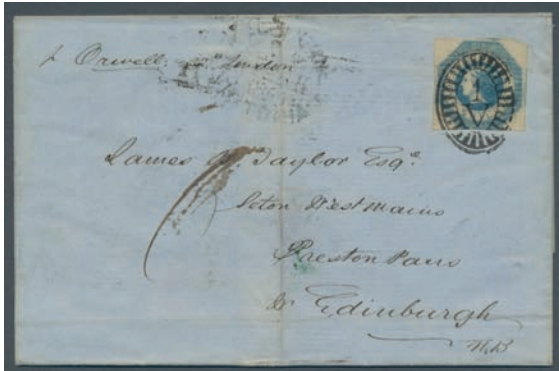 p Orwell via London
1
V
James A. Taylor Esqr.
Seton West Mains
Preston Pans
Nr Edinburgh
N.B